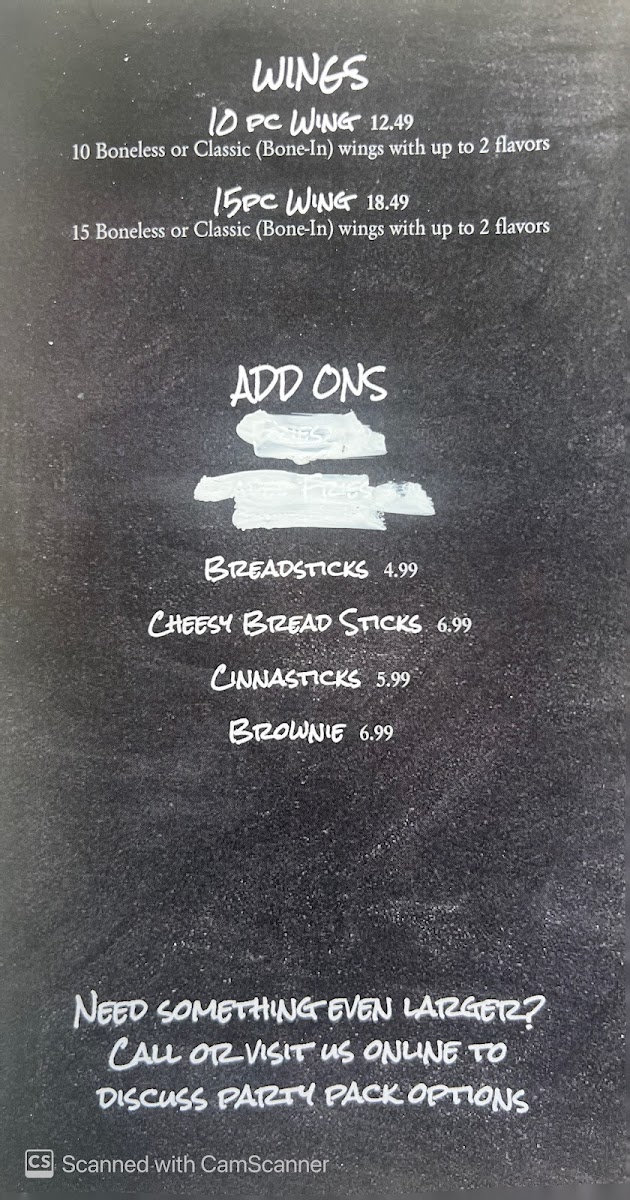 WINGS
10 PC WING 12.49
10 Boneless or Classic (Bone-In) wings with up to 2 flavors
15PC WING 18.49
15 Boneless or Classic (Bone-In) wings with up to 2 flavors
ADD ONS
BREADSTICKS 4.99
CHEESY BREAD STICKS 6.99
CINNASTICKS 5.99
BROWNIE 6.99
NEED SOMETHING EVEN LARGER?
CALL OR VISIT US ONLINE TO
DISCUSS PARTY PACK OPTIONS
CS Scanned with CamScanner